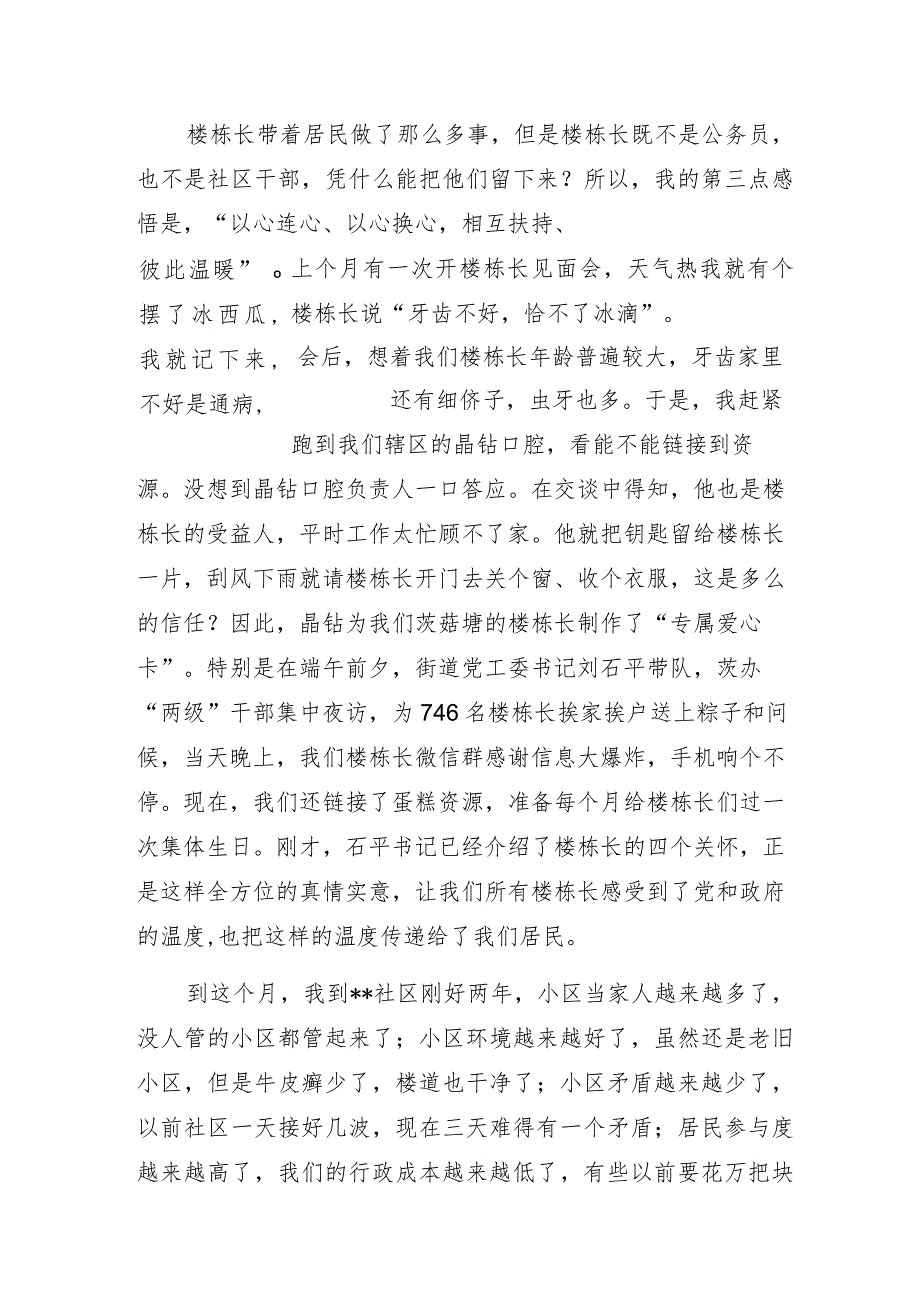 楼栋长带着居民做了那么多事，但是楼栋长既不是公务员，
也不是社区干部，凭什么能把他们留下来？所以，我的第三点感
悟是，“以心连心、以心换心，相互扶持、
彼此温暖”。上个月有一次开楼栋长见面会，天气热我就有个
摆了冰西瓜，楼栋长说“牙齿不好，恰不了冰滴”。
我就记下来，会后，想着我们楼栋长年龄普遍较大，牙齿家里
不好是通病，还有细侪子，虫牙也多。于是，我赶紧
跑到我们辖区的晶钻口腔，看能不能链接到资
源。没想到晶钻口腔负责人一口答应。在交谈中得知，他也是楼
栋长的受益人，平时工作太忙顾不了家。他就把钥匙留给楼栋长
一片，刮风下雨就请楼栋长开门去关个窗、收个衣服，这是多么
的信任？因此，晶钻为我们茨菇塘的楼栋长制作了“专属爱心
卡”。特别是在端午前夕，街道党工委书记刘石平带队，茨办
“两级”干部集中夜访，为 746 名楼栋长挨家挨户送上粽子和问
候，当天晚上，我们楼栋长微信群感谢信息大爆炸，手机响个不
停。现在，我们还链接了蛋糕资源，准备每个月给楼栋长们过一
次集体生日。刚才，石平书记已经介绍了楼栋长的四个关怀，正
是这样全方位的真情实意，让我们所有楼栋长感受到了党和政府
的温度,也把这样的温度传递给了我们居民。
到这个月，我到**社区刚好两年，小区当家人越来越多了，
没人管的小区都管起来了；小区环境越来越好了，虽然还是老旧
小区，但是牛皮癣少了，楼道也干净了；小区矛盾越来越少了，
以前社区一天接好几波，现在三天难得有一个矛盾；居民参与度
越来越高了，我们的行政成本越来越低了，有些以前要花万把块